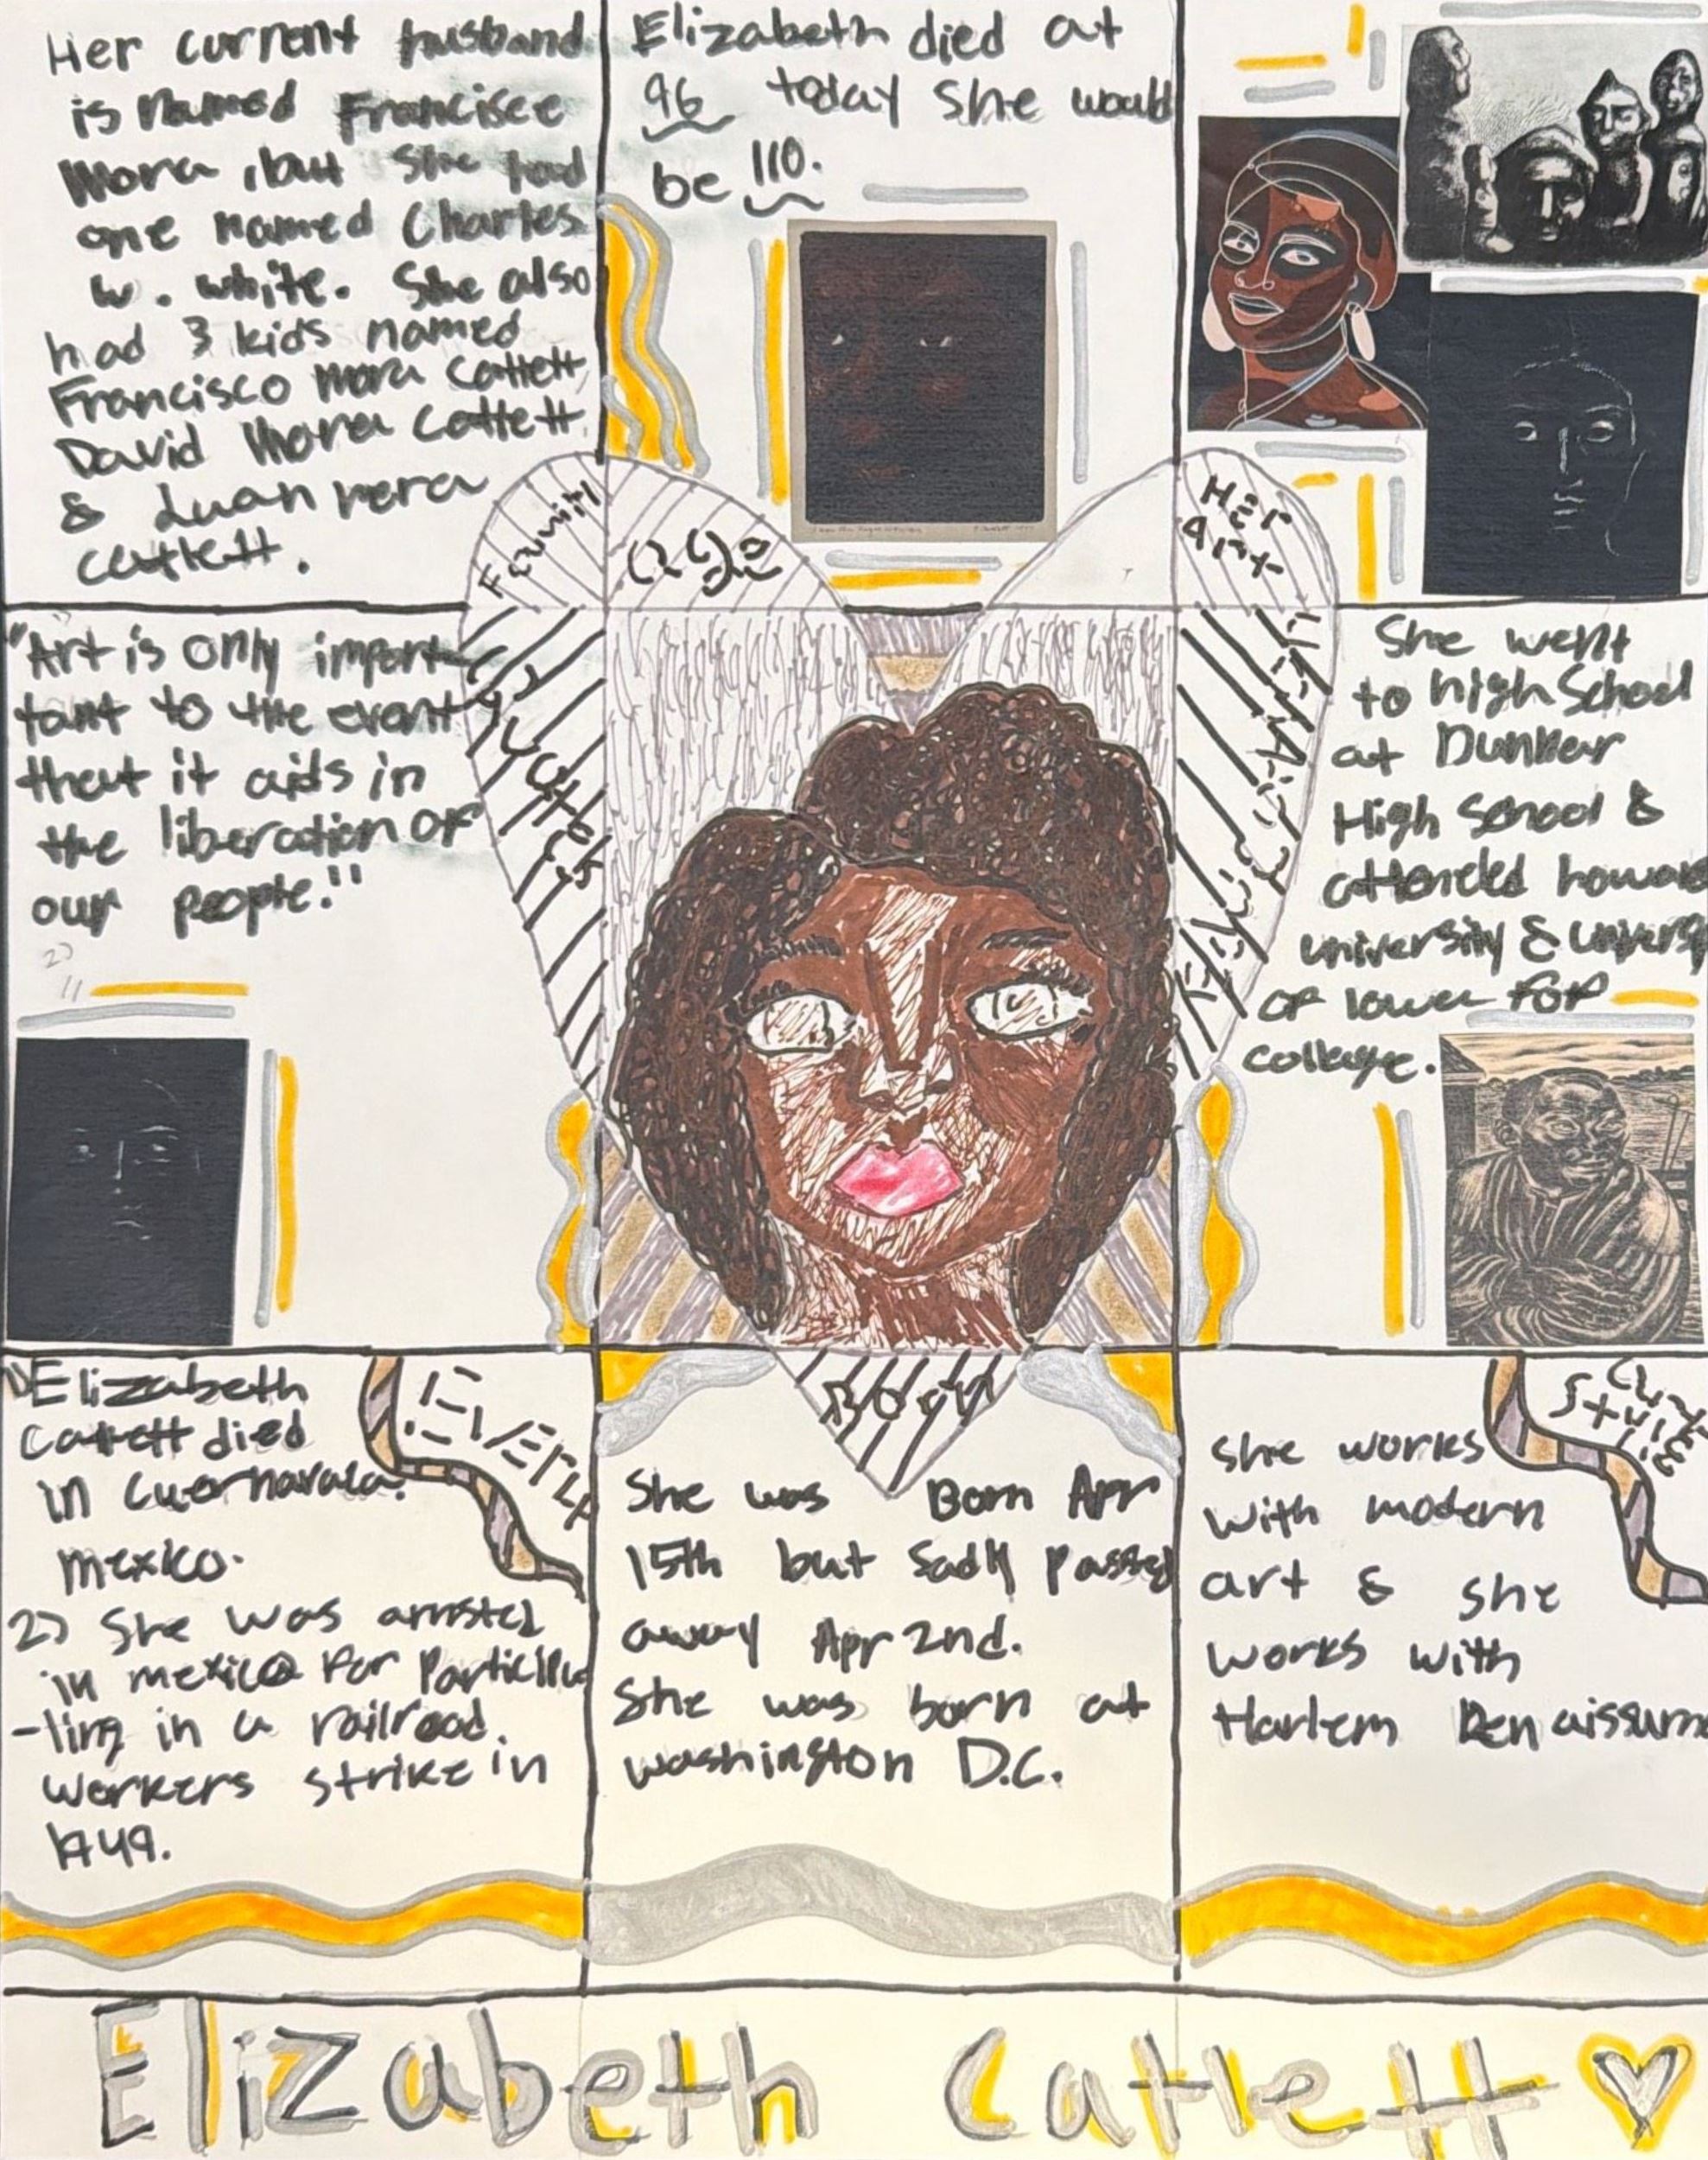 Her current husband
is named Francisce
Mora, but she had
one named Charles
W. white. She also
had 3 kids named
Francisco Mora Catlett,
David Mora Catlett
& Juan Mora
Catlett.
Family
Elizabeth died at
96 today she would
be 110.
Age
Her
Art
"Art is only impor-
tant to the event
that it aids in
the liberation of
our people."
She went
to high School
at Dunbar
High School &
attended howard
university & univers
of Iowa for
college.
1) Elizabeth
Catlett died
in Cuernavaca.
mexico.
2) She was arrested
in mexico for Particip
-ting in a railroad
workers strike in
1949.
Born
She was Born Apr
15th but Sadly passed
away Apr 2nd.
She was born at
washington D.C.
She works
with modern
art & she
works with
Harlem Renaissan
Elizabeth Catlett